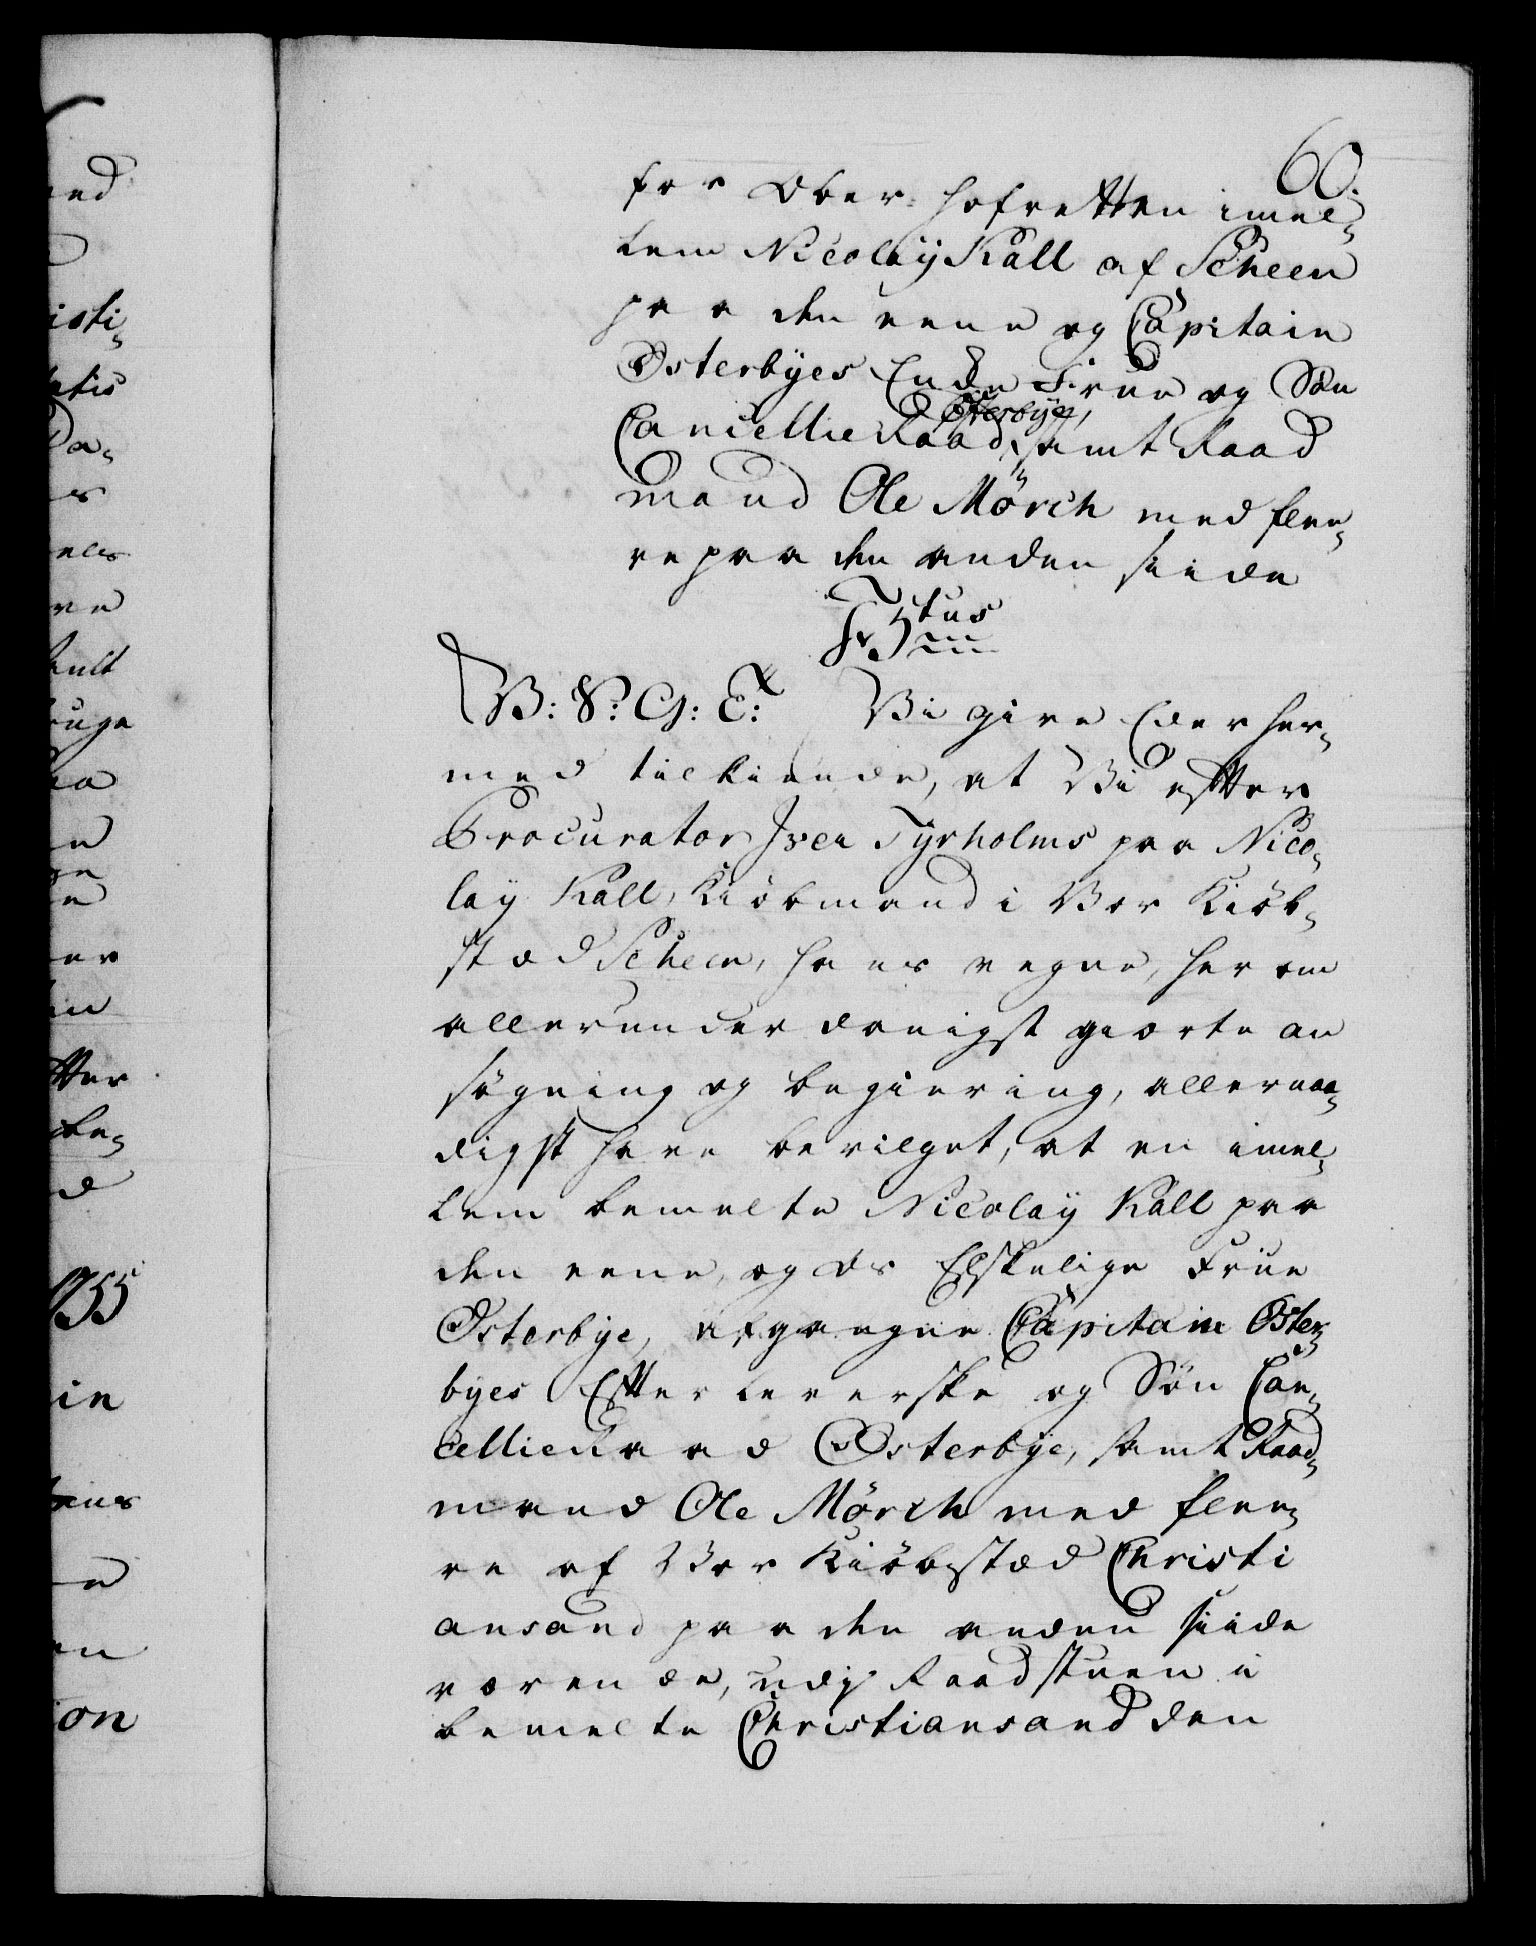 60.
for Ober-hofretten imel-
lem Nicolaÿ Kall af Scheen
paa den eene og Capitain
Østerbÿes Encke Frue og Søn
Cancellie Raad Østerbÿe, samt Raad
mand Ole Mörch med flee-
re paa den anden siide
Fr: 5tus
V: S: G: T: Vi give Eder her-
med tilkiende, at Vi efter
Procurator Iver Tyrholms paa Nico-
lay Kall, Kiöbmand i Vor Kiöb-
stæd Scheen, hans vegne, her om
allerunderdanigst giorte an
søgning og begiering, allernaa-
digst have bevilget, at en imel-
lem bemelte Nicolaÿ Kall paa
den eene, og os Elskelige Frue
Østerbÿe, afgangne Capitain Øster-
byes Efterleverske og Søn Can-
cellieraad Østerbÿe, samt Raad-
mand Ole Mörch med flee-
re af Vor Kiöbstæd Christi
ansand paa den anden siide
værende, udj Raadstuen i
bemelte Christiansand den
ed
isti-
tatis
Da-
re
ault
er
in
tter
be-
1755
in
en
ion